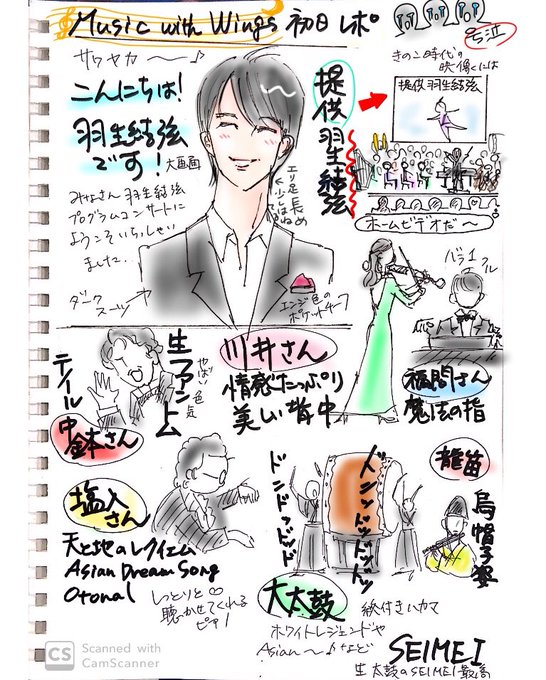 Music with Wings 初日レポ
サワヤカ〜〜♪
こんにちは!
羽生結弦
です!
大画面
みなさん 羽生結弦
プログラムコンサートに
ようこそいらっしゃい
ました…
ダーク
スーツ
エリ足長め
少しはね
エンジ色の
ポケットチーフ
提供 羽生結弦
ち泣
きのこ時代の
映像くには
提供羽生結弦
ホームビデオだ〜
バラエフル
生ファントム
やばい色気
テイル中
金本さん
川井さん
情感たっぷり
美しい背中
福間さん
魔法の指
塩入
さん
天と地のレクイエム
Asian Dream Song
Otonal
しっとりと
聴かせてくれる
ピアノ
ドンドンドッド
ドンッドッドッドッ
大太鼓
絵付きハカマ
ホワイトレジェンドや
Asian〜♪など
龍笛
烏帽子姿
SEIMEI
生太鼓のSEIMEI最高
CS
Scanned with
CamScanner